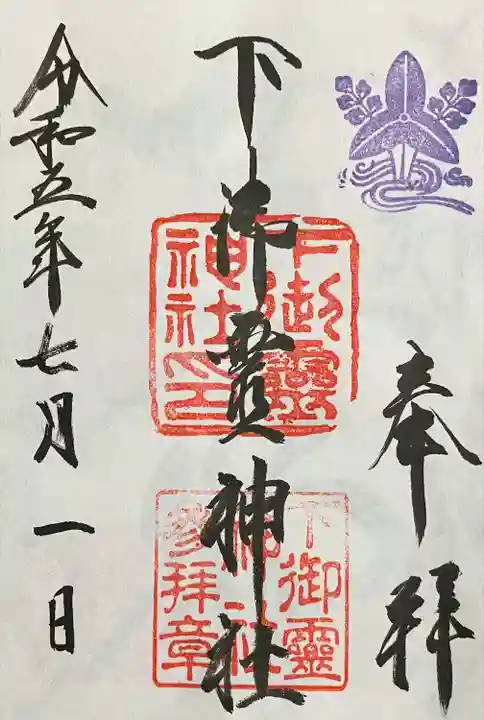 奉拝
下御霊神社
下御靈
神社印
下御靈
神社
参拝章
令和五年七月一日